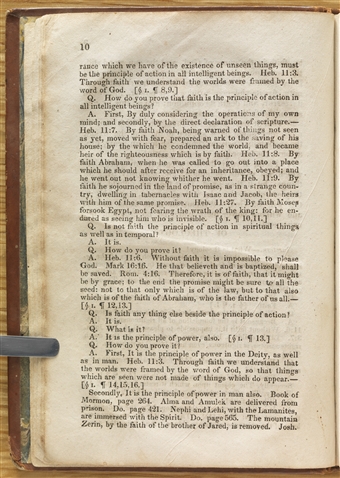 10
rance which we have of the existence of unseen things, must
be the principle of action in all intelligent beings. Heb. 11:3.
Through faith we understand the worlds were framed by the
word of God. [§ I. ¶ 8,9.]
Q. How do you prove that faith is the principle of action in
all intelligent beings?
A. First, By duly considering the operations of my own
mind; and secondly, by the direct declaration of scripture.—
Heb. 11:7. By faith Noah, being warned of things not seen
as yet, moved with fear, prepared an ark to the saving of his
house; by the which he condemned the world, and became
heir of the righteousness which is by faith. Heb. 11:8. By
faith Abraham, when he was called to go out into a place
which he should after receive for an inheritance, obeyed; and
he went out not knowing whither he went. Heb. 11:9. By
faith he sojourned in the land of promise, as in a strange coun-
try, dwelling in tabernacles with Isaac and Jacob, the heirs
with him of the same promise. Heb. 11:27. By faith Moses
forsook Egypt, not fearing the wrath of the king: for he en-
dured as seeing him who is invisible. [§ I. ¶ 10,11.]
Q. Is not faith the principle of action in spiritual things
as well as in temporal?
A. It is.
Q. How do you prove it?
A. Heb. 11:6. Without faith it is impossible to please
God. Mark 16:16. He that believeth and is baptized, shall
be saved. Rom. 4:16. Therefore, it is of faith, that it might
be by grace; to the end the promise might be sure to all the
seed: not to that only which is of the law, but to that also
which is of the faith of Abraham, who is the father of us all.—
[§ I. ¶ 12,13.]
Q. Is faith any thing else beside the principle of action?
A. It is.
Q. What is it?
A. It is the principle of power, also. [§ I. ¶ 13.]
Q. How do you prove it?
A. First, It is the principle of power in the Deity, as well
as in man. Heb. 11:3. Through faith we understand that
the worlds were framed by the word of God, so that things
which are seen were not made of things which do appear.—
[§ I. ¶ 14,15,16.]
Secondly, It is the principle of power in man also. Book of
Mormon, page 264. Alma and Amulek are delivered from
prison. Do. page 421. Nephi and Lehi, with the Lamanites,
are immersed with the Spirit. Do. page 565. The mountain
Zerin, by the faith of the brother of Jared, is removed. Josh.